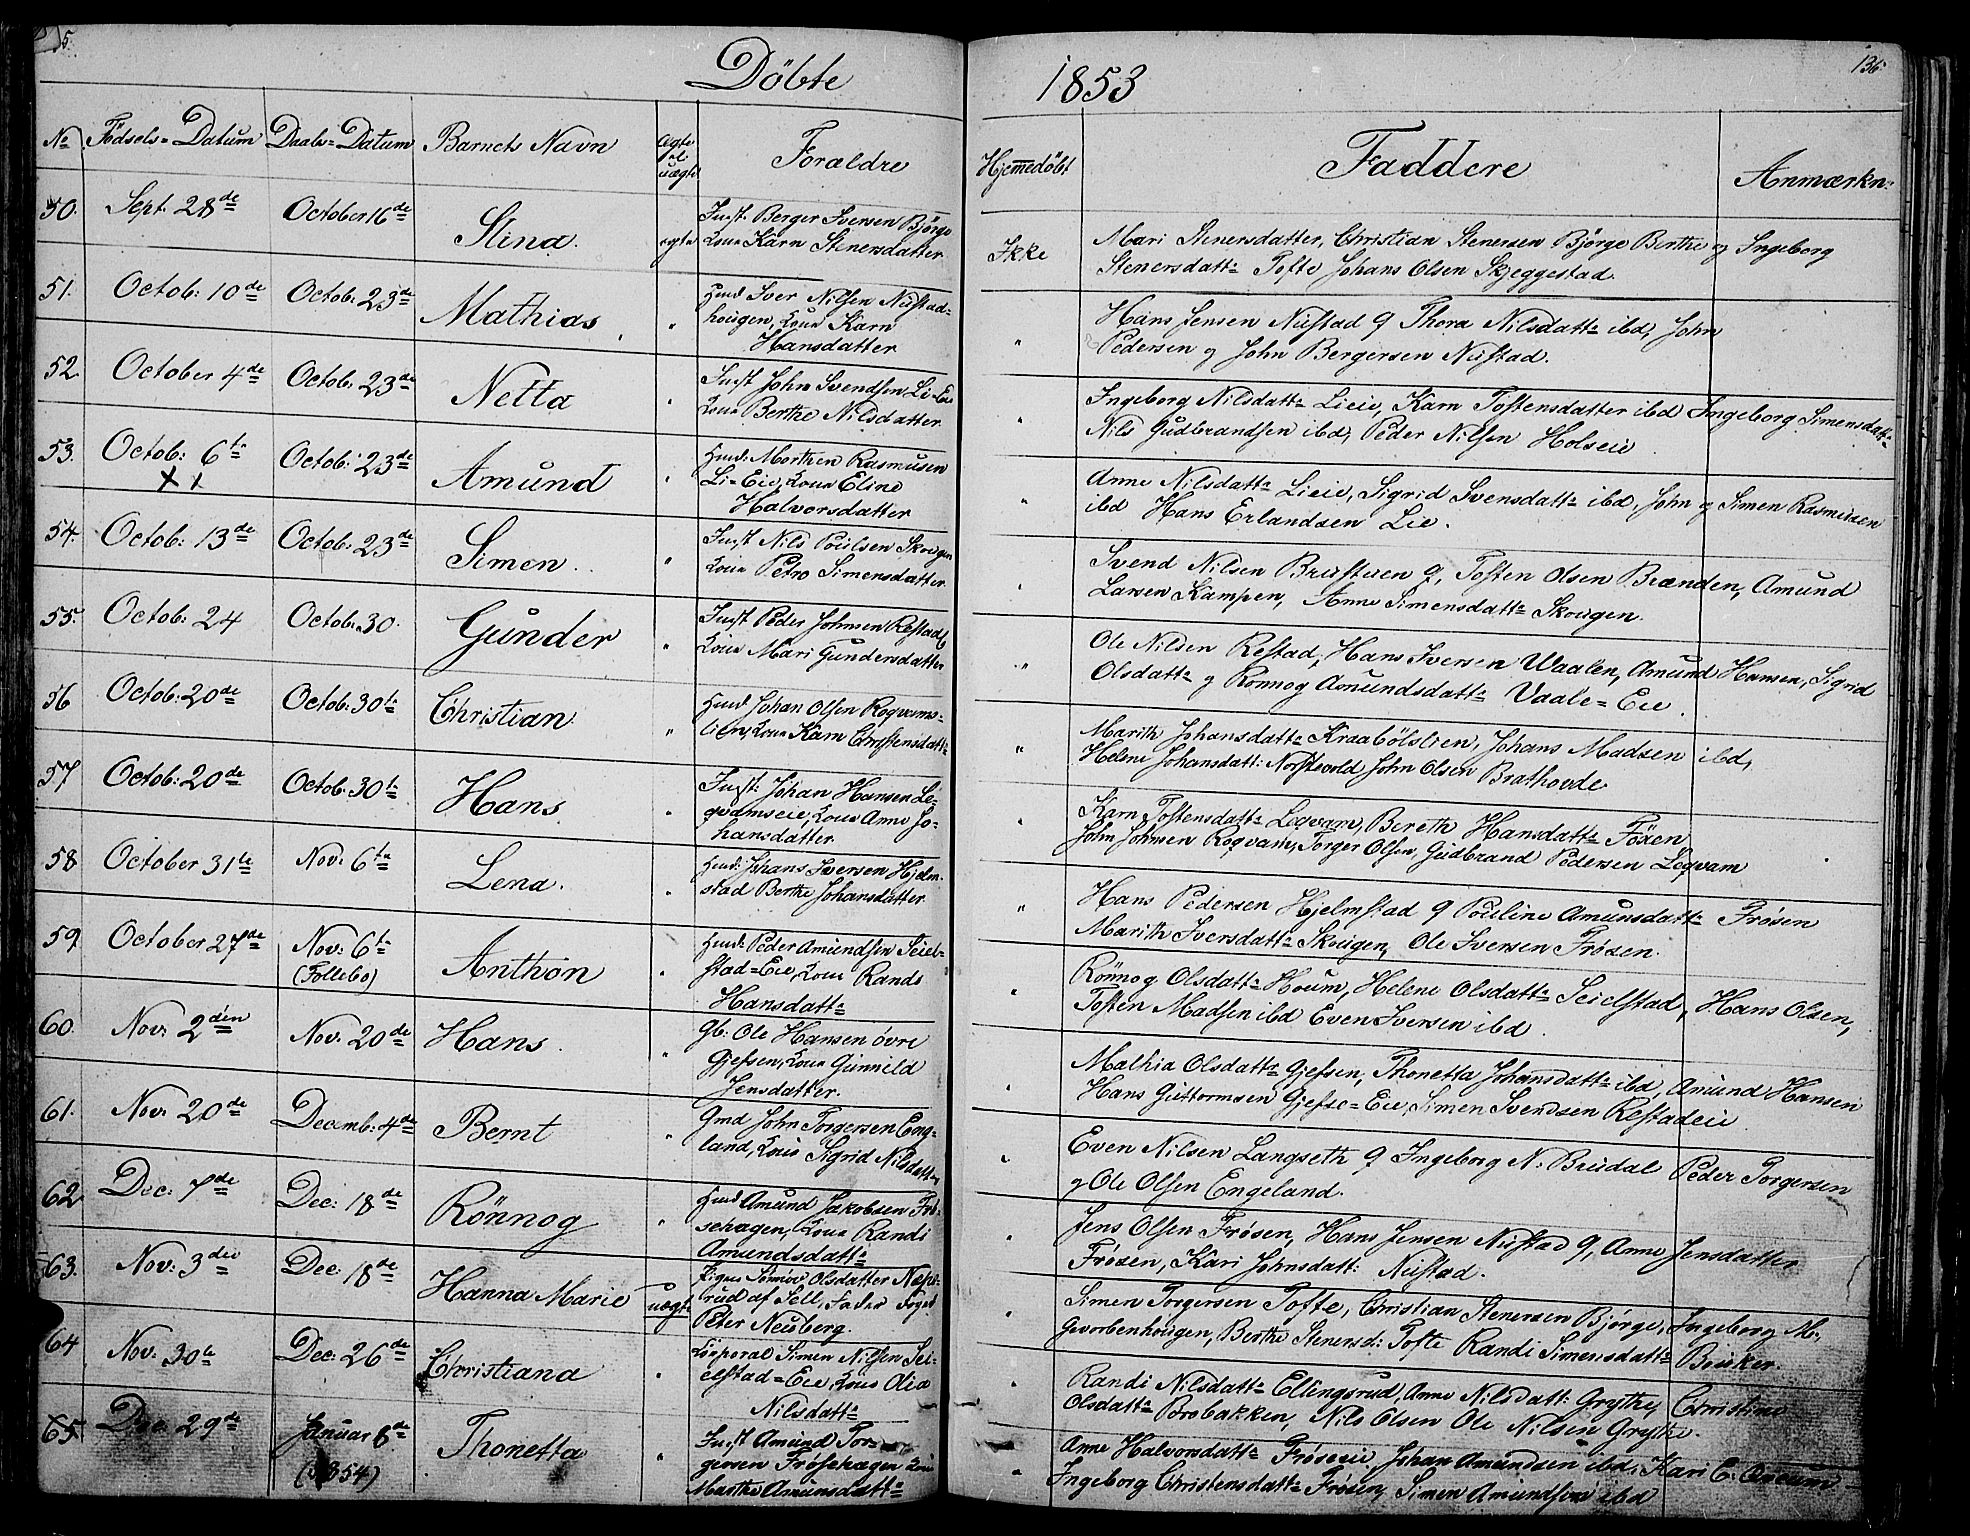 5.
Döbte
1853
136
No Födsels-Datum Daabs-Datum Barnets Navn Ægte el uægte Forældre
Hjemmedöbt Faddere Anmærkn:
50. Sept. 28de October 16de Stina. egte Inst. Berger Iversen Björge
Kone Karn Stenersdatter
Ikke Mari Stenersdatter, Christian Stenersen Björge Berthe og Ingeborg
Stenersdattr Tofte Johans Olsen Skjeggestad.
51. Octob: 10de Octob: 23de Mathias " Huusd Iver Nilsen Nustad-
hougen, Kone Karn
Hansdatter
" Hans Jensen Nustad q Thora Nilsdattr ibd, John
Pedersen og John Bergersen Nustad.
52. October 4de Octob. 23de Netta " Inst John Svendsen Li-Eie
Kone Berthe Nilsdatter
" Ingeborg Nilsdattr Lieie, Karn Tostensdatter ibd Ingeborg Simensdattr
Nils Gudbrandsen ibd, Peder Nilsen Holseie
53. Octob: 6te Octob: 23de Amund " Huusd: Morthen Rasmusen
Li-Eie, Kone Eline
Halvorsdatter
" Anne Nilsdattr Lieie, Sigrid Svensdattr ibd, John og Simen Rasmusen
ibd Hans Erlandsen Lie.
54. Octob: 13de Octob: 23de Simen. " Inst Nils Poulsen Skougen
Kone Petro Simensdatter
" Svend Nilsen Brustuen q, Tosten Olsen Brænden, Amund
Larsen Kampen, Anne Simensdattr Skougen.
55. Octob: 24 Octob. 30. Gunder " Inst Peder Johnsen Restad
Kone Mari Gundersdatter
" Ole Nilsen Restad, Hans Iversen Vaalen, Amund Hansen, Sigrid
Olsdattr og Rønnog Amundsdattr Vaale-Eie.
56 Octob: 20de Octob: 30te Christian " Huusd Johan Olsen Roqvams-
lien, Kone Karn Christensdattr
" Marith Johansdattr Kraabölslien, Johans Madsen ibd,
Helene Johansdatt: Norstvold John Olsen Brathovde
57 Octob: 20de Octob: 30te Hans " Inst: Johan Hansen Lö-
qvamseie, Kone Anne Jo-
hansdatter
" Karn Tostensdattr Löqvam, Bereth Hansdattr Föxen
John Johnsen Roqvam, Torger Olsen, Gudbrand Pedersen Löqvam
58 October 31te Nov: 6te Lena. " Huusd: Johans Iversen Hjelm-
stad Berthe Johansdatter
" Hans Pedersen Hjelmstad q Pouline Amunsdattr Frøsen
Marith Iversdattr Skougen, Ole Iversen Frøsen.
59 October 27de Nov: 6te (Follebo) Anthon " Huusd: Peder Amundsen Seiel-
stad-Eie, Kone Randi
Hansdattr
" Rönnog Olsdattr Houm, Helene Olsdattr Seielstad, Hans Olsen,
Tosten Madsen ibd Even Iversen ibd.
60. Nov: 2den Nov: 20de Hans. " Gb: Ole Hansen övre
Gjefsen, Kone Gunnild
Jensdatter.
" Mathia Olsdattr Gjefsen, Thonetta Johansdattr ibd, Amund Hansen
Hans Guttormsen Gjefse-Eie, Simen Svendsen Restadeie
61. Nov: 20de Decemb: 4de Bernt " Gmd John Torgersen Eng-
land, Kone Sigrid Nilsdattr
" Even Nilsen Langseth q Ingeborg N. Brudal Peder Torgersen
og Ole Olsen Engeland.
62 Dec: 7de Dec: 18de Rönnog " Huusd Amund Jakobsen Frö-
sehagen, Kone Randi
Amundsdattr
" Jens Olsen Frøsen, Hans Jensen Nustad q, Anne Jensdatter
Frøsen, Kari Johnsdatt: Nustad.
63. Nov: 3die Dec: 18de Hanna Marie uægte Pigen Olsdatter
rud af Sell, Fader Foged
Peter Neuberg.
" Simen Torgersen Tofte, Christian Stenersen Björge, Ingeborg M.
Gevorbenhougen, Berthe Stenersd: Tofte Randi Simensdattr
64 Nov: 30te Dec: 26de Christiana " Corporal Simen Nilsen Sei-
elstad-Eie, Kone Olia
Nilsdattr
" Randi Nilsdattr Ellingsrud Anne Nilsdatt: Grythe, Christine
Olsdattr Brobakken, Nils Olsen Ole Nilsen Grythe.
65 Dec 29de Januar 8de (1854) Thonetta " Inst Amund Tor-
gersen Fröshagen Kone
Marthe Amunsdattr
" Anne Halvorsdattr Frøseeie, Johan Amundsen ibd, Kari C.
Ingeborg Christensdattr Frøsen, Simen Amundsen ibd